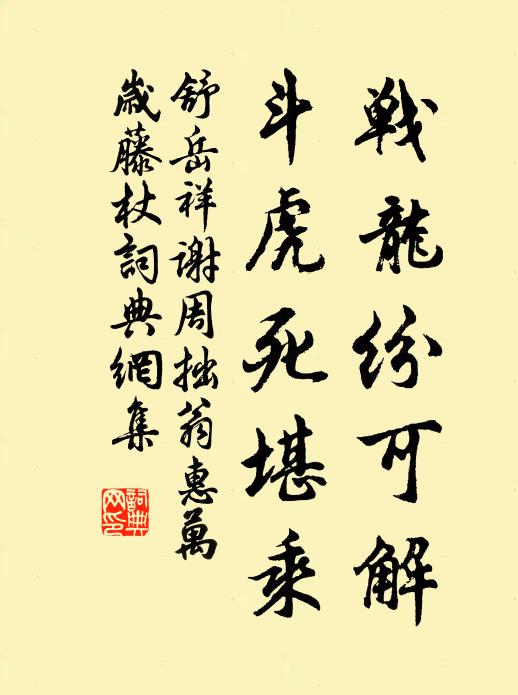 戰龍紛可解
斗虎死堪乘
舒岳祥謝周拙翁惠萬
歲藤杖詞典網集
詞典
网印